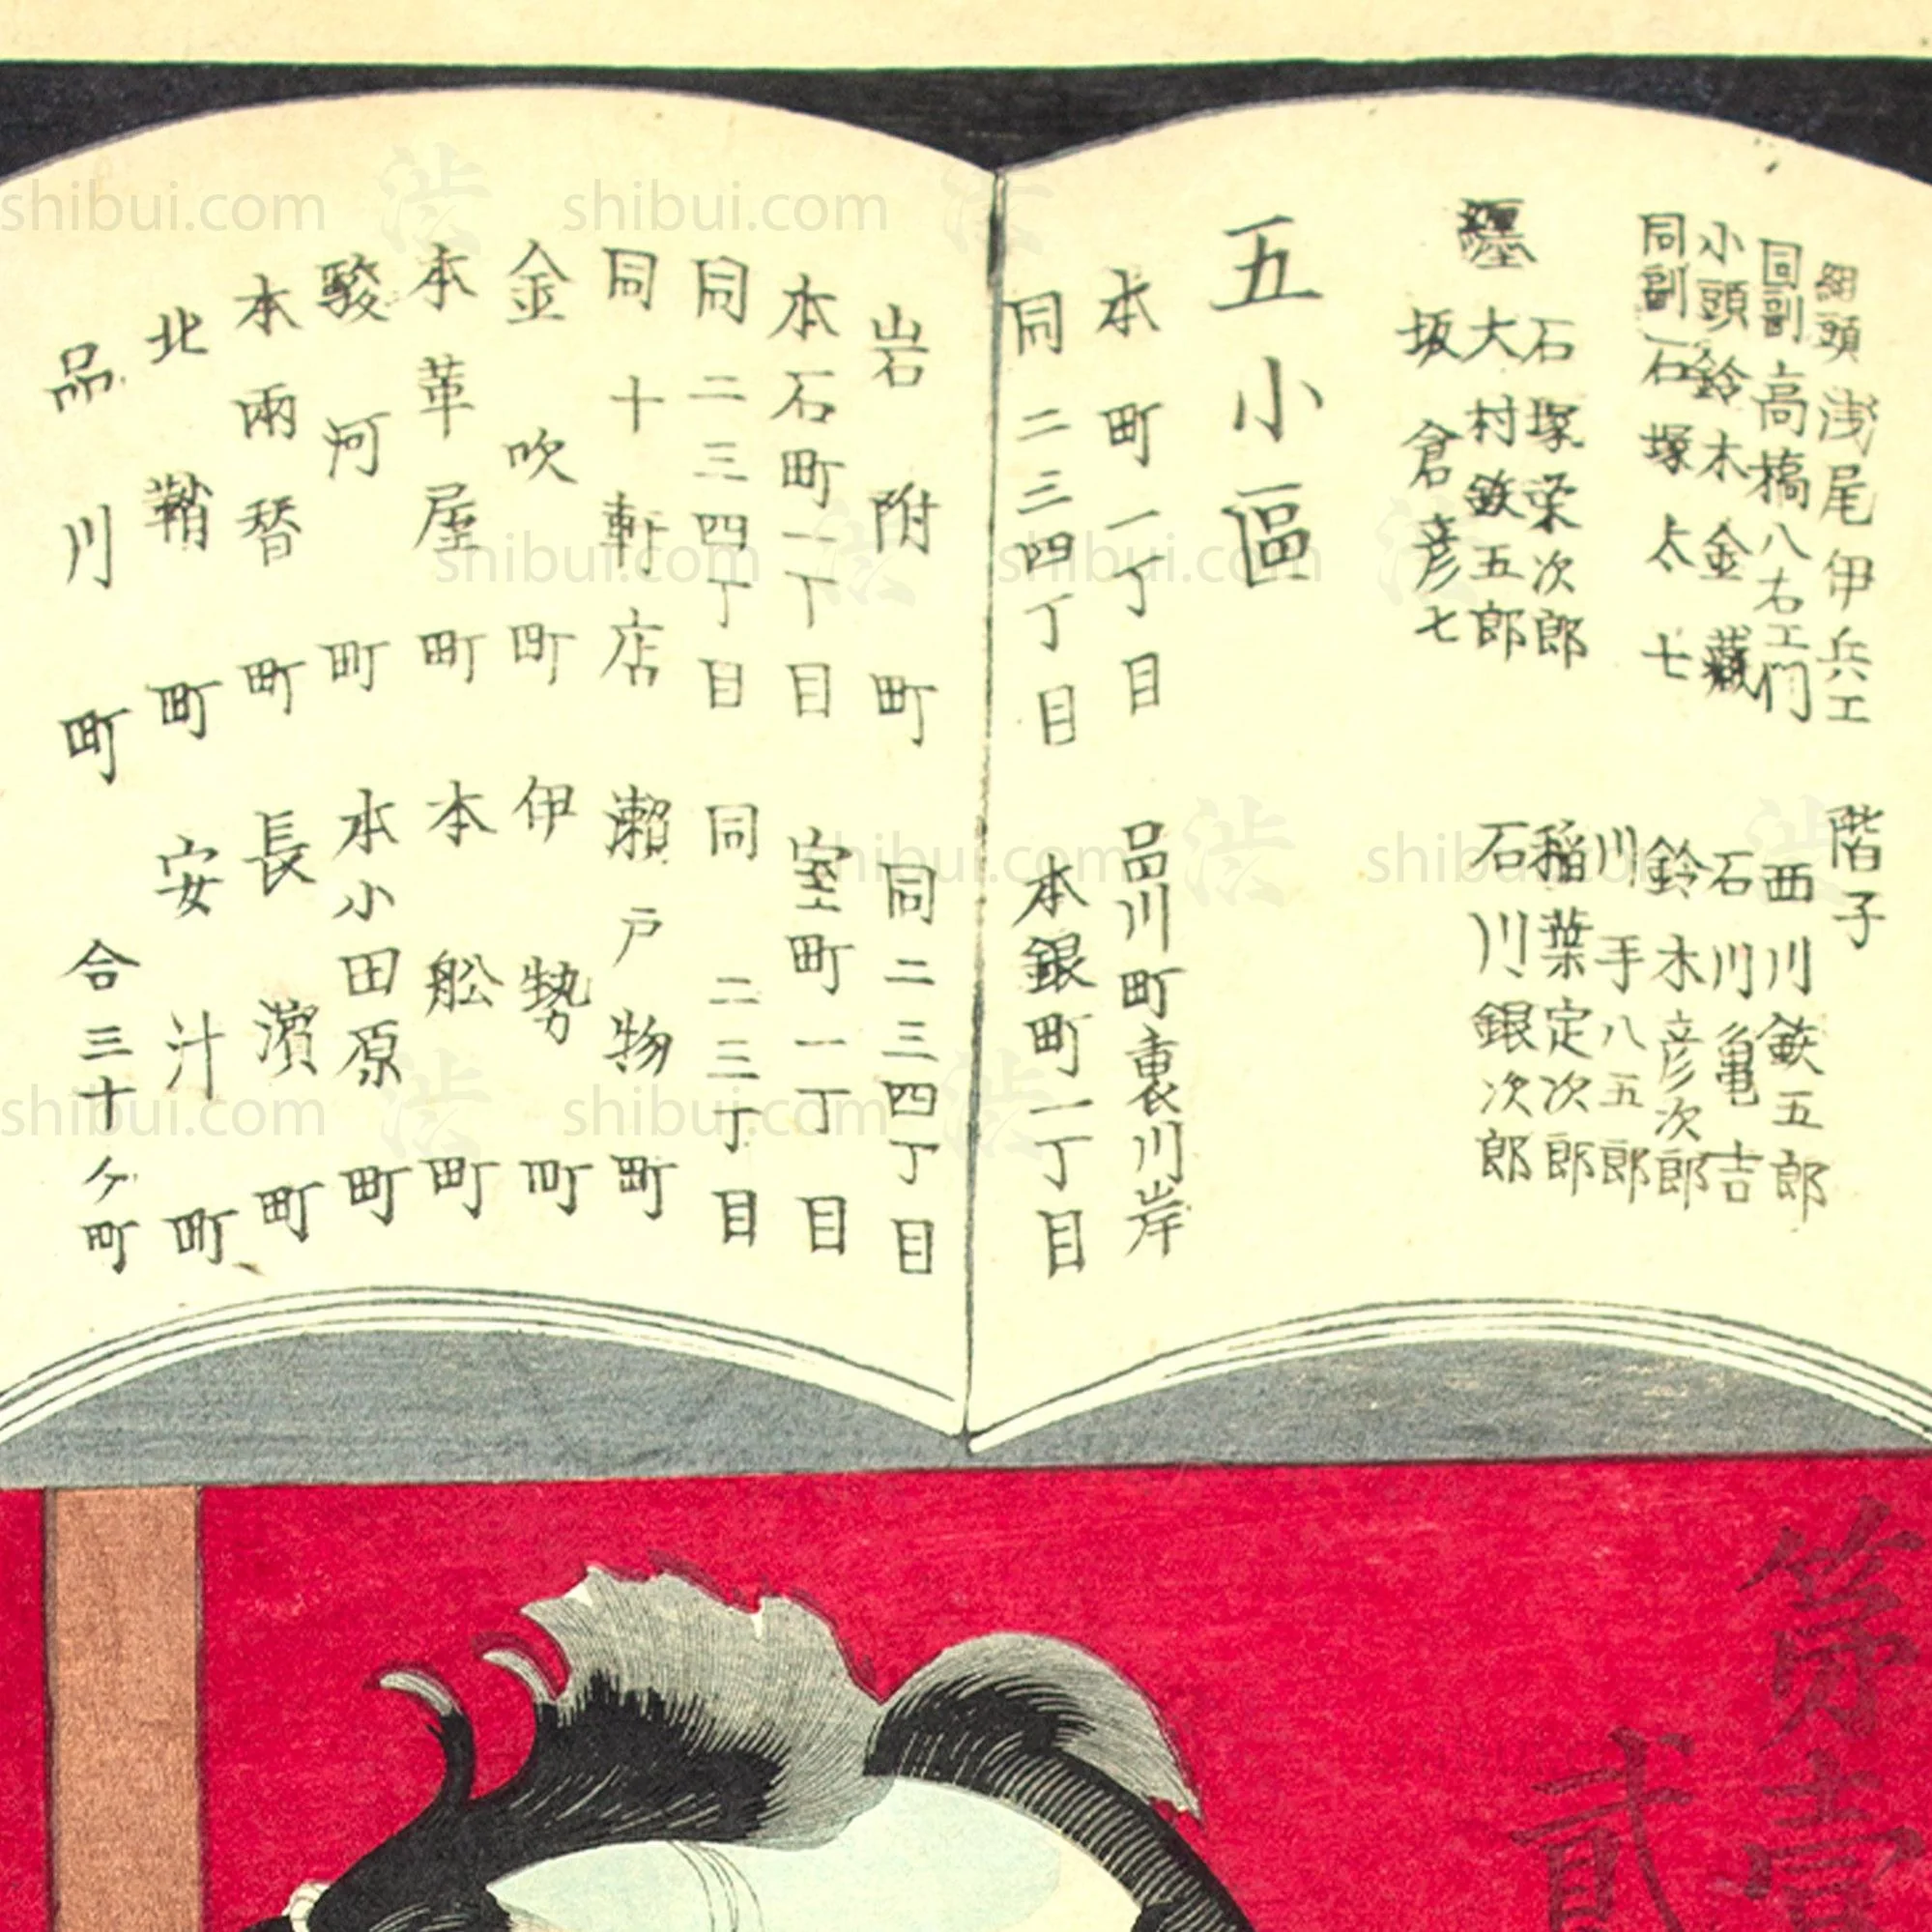 組頭 浅尾伊兵エ
同副 高橋八右エ門
小頭 鈴木金藏
同副 石塚太七
纒
石塚栄次郎
大村鉄五郎
坂倉彦七
階子
西川鉄五郎
石川亀吉
鈴木彦次郎
川手八五郎
稲葉定次郎
石川銀次郎
五小區
本町一丁目
品川町裏川岸
同二三四丁目
本銀町一丁目
岩附町
同二三四丁目
本石町一丁目
室町一丁目
同二三四丁目
同二三丁目
同十軒店
瀬戸物町
金吹町
伊勢町
本革屋町
本舩町
駿河町
本小田原町
本兩替町
長濱町
北鞘町
安汁町
品川町
合三十ケ町
第壹
貳
shibui.com